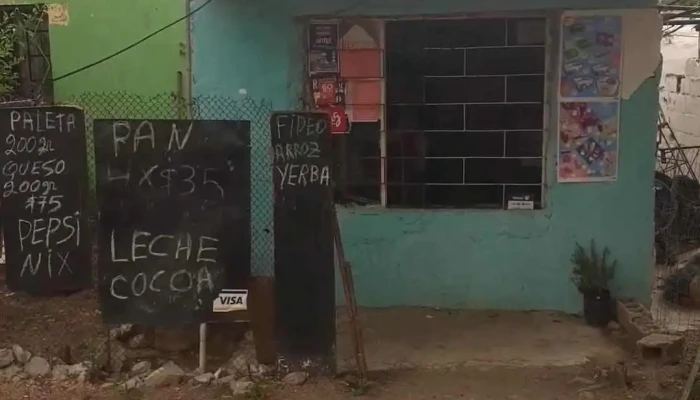 PALETA
200gr
QUESO
200gr
$75
PEPSI
NIX
PAN
4X$35
LECHE
COCOA
VISA
FIDEO
ARROZ
YERBA